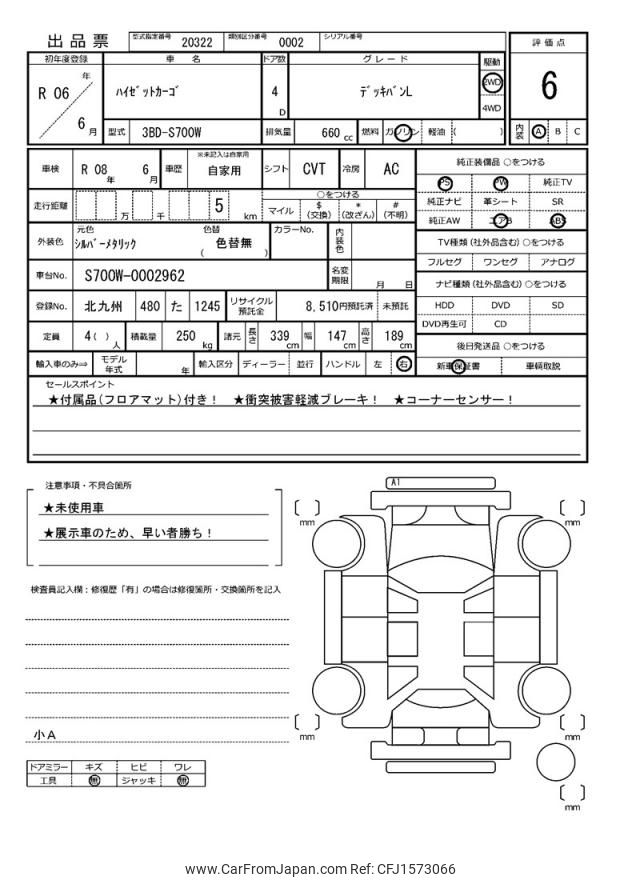 出品票 型式指定番号 20322 類別区分番号 0002 シリアル番号
評価点
6
内装 A B C
初年度登録 車名 ドア数 グレード 駆動
R 06 年 6 月 ﾊｲｾﾞｯﾄｶｰｺﾞ 4 D ﾃﾞｯｷﾊﾞﾝL 2WD
4WD
型式 3BD-S700W 排気量 660 cc 燃料 ガソリン 軽油 ( )
車検 R 08 年 6 月 車歴 ※未記入は自家用 自家用 シフト CVT 冷房 AC
走行距離 万 千 5 km ○をつける
マイル $(交換) *(改ざん) #(不明)
外装色 元色 ｼﾙﾊﾞｰﾒﾀﾘｯｸ 色替 ( 色替無 ) カラーNo. 内装色
車台No. S700W-0002962 名変期限 月 日
登録No. 北九州 480 た 1245 リサイクル預託金 8,510円預託済 未預託
定員 4( ) 人 積載量 250 kg 諸元 長さ 339 cm 幅 147 cm 高さ 189 cm
輸入車のみ⇒ モデル年式 年 輸入区分 ディーラー 並行 ハンドル 左 右
純正装備品 ○をつける
PS PW 純正TV
純正ナビ 革シート SR
純正AW エアB ABS
TV種類(社外品含む)○をつける
フルセグ ワンセグ アナログ
ナビ種類(社外品含む)○をつける
HDD DVD SD
DVD再生可 CD
後日発送品 ○をつける
新車保証書 車輌取説
セールスポイント
★付属品(フロアマット)付き! ★衝突被害軽減ブレーキ! ★コーナーセンサー!
注意事項・不具合箇所
★未使用車
★展示車のため、早い者勝ち!
検査員記入欄：修復歴「有」の場合は修復箇所・交換箇所を記入
小A
ドアミラー キズ ヒビ ワレ
工具 無 ジャッキ 無
A1
mm
mm
mm
mm
mm
www.CarFromJapan.com Ref: CFJ1573066